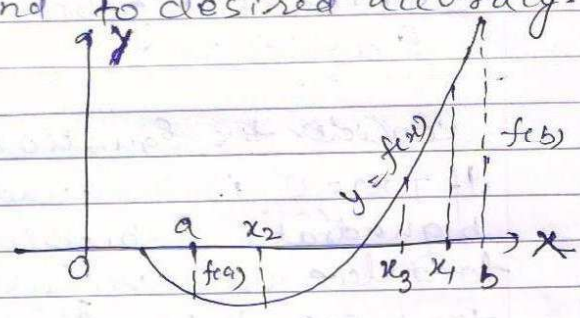 nd to desired accuracy.
y
y = f(x)
f(b)
a x₂
O f(a) x₃ x₁ b X